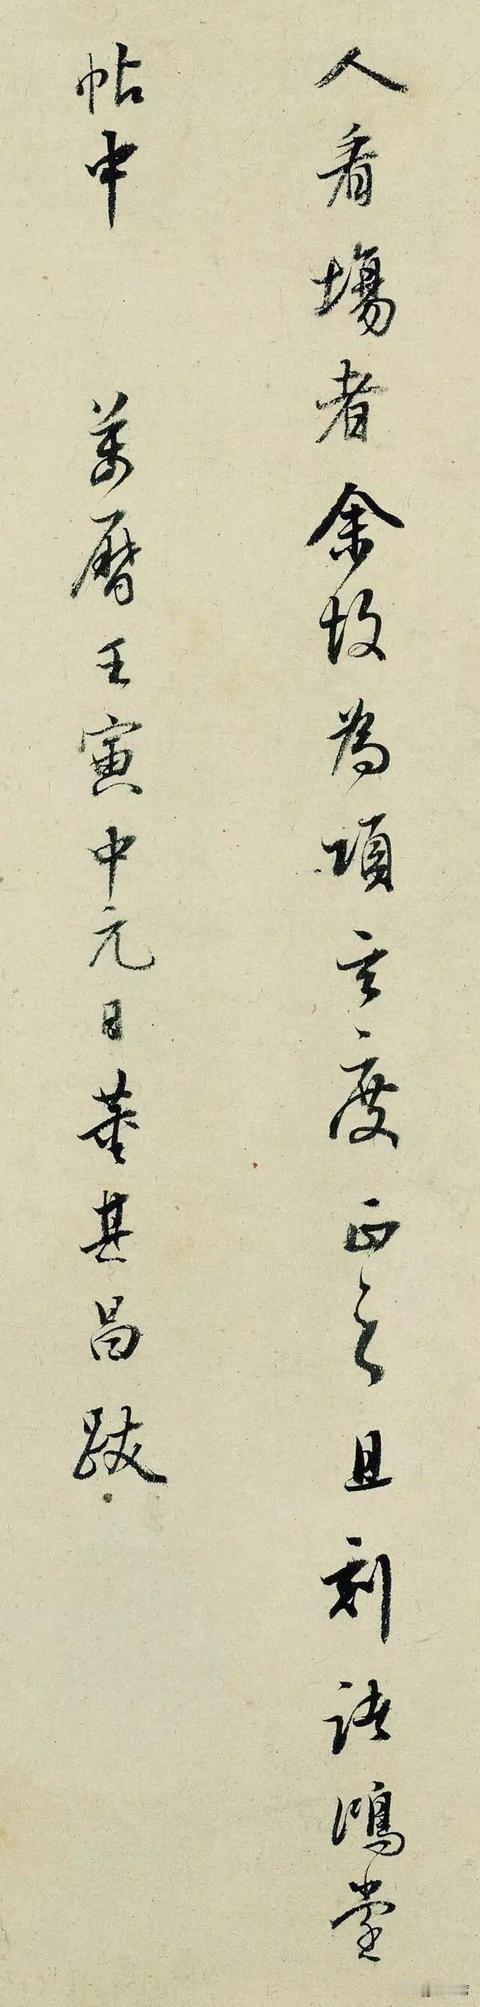 人看場者余故為項玄度正之且刻語鴻堂
帖中　萬曆壬寅中元日董其昌跋